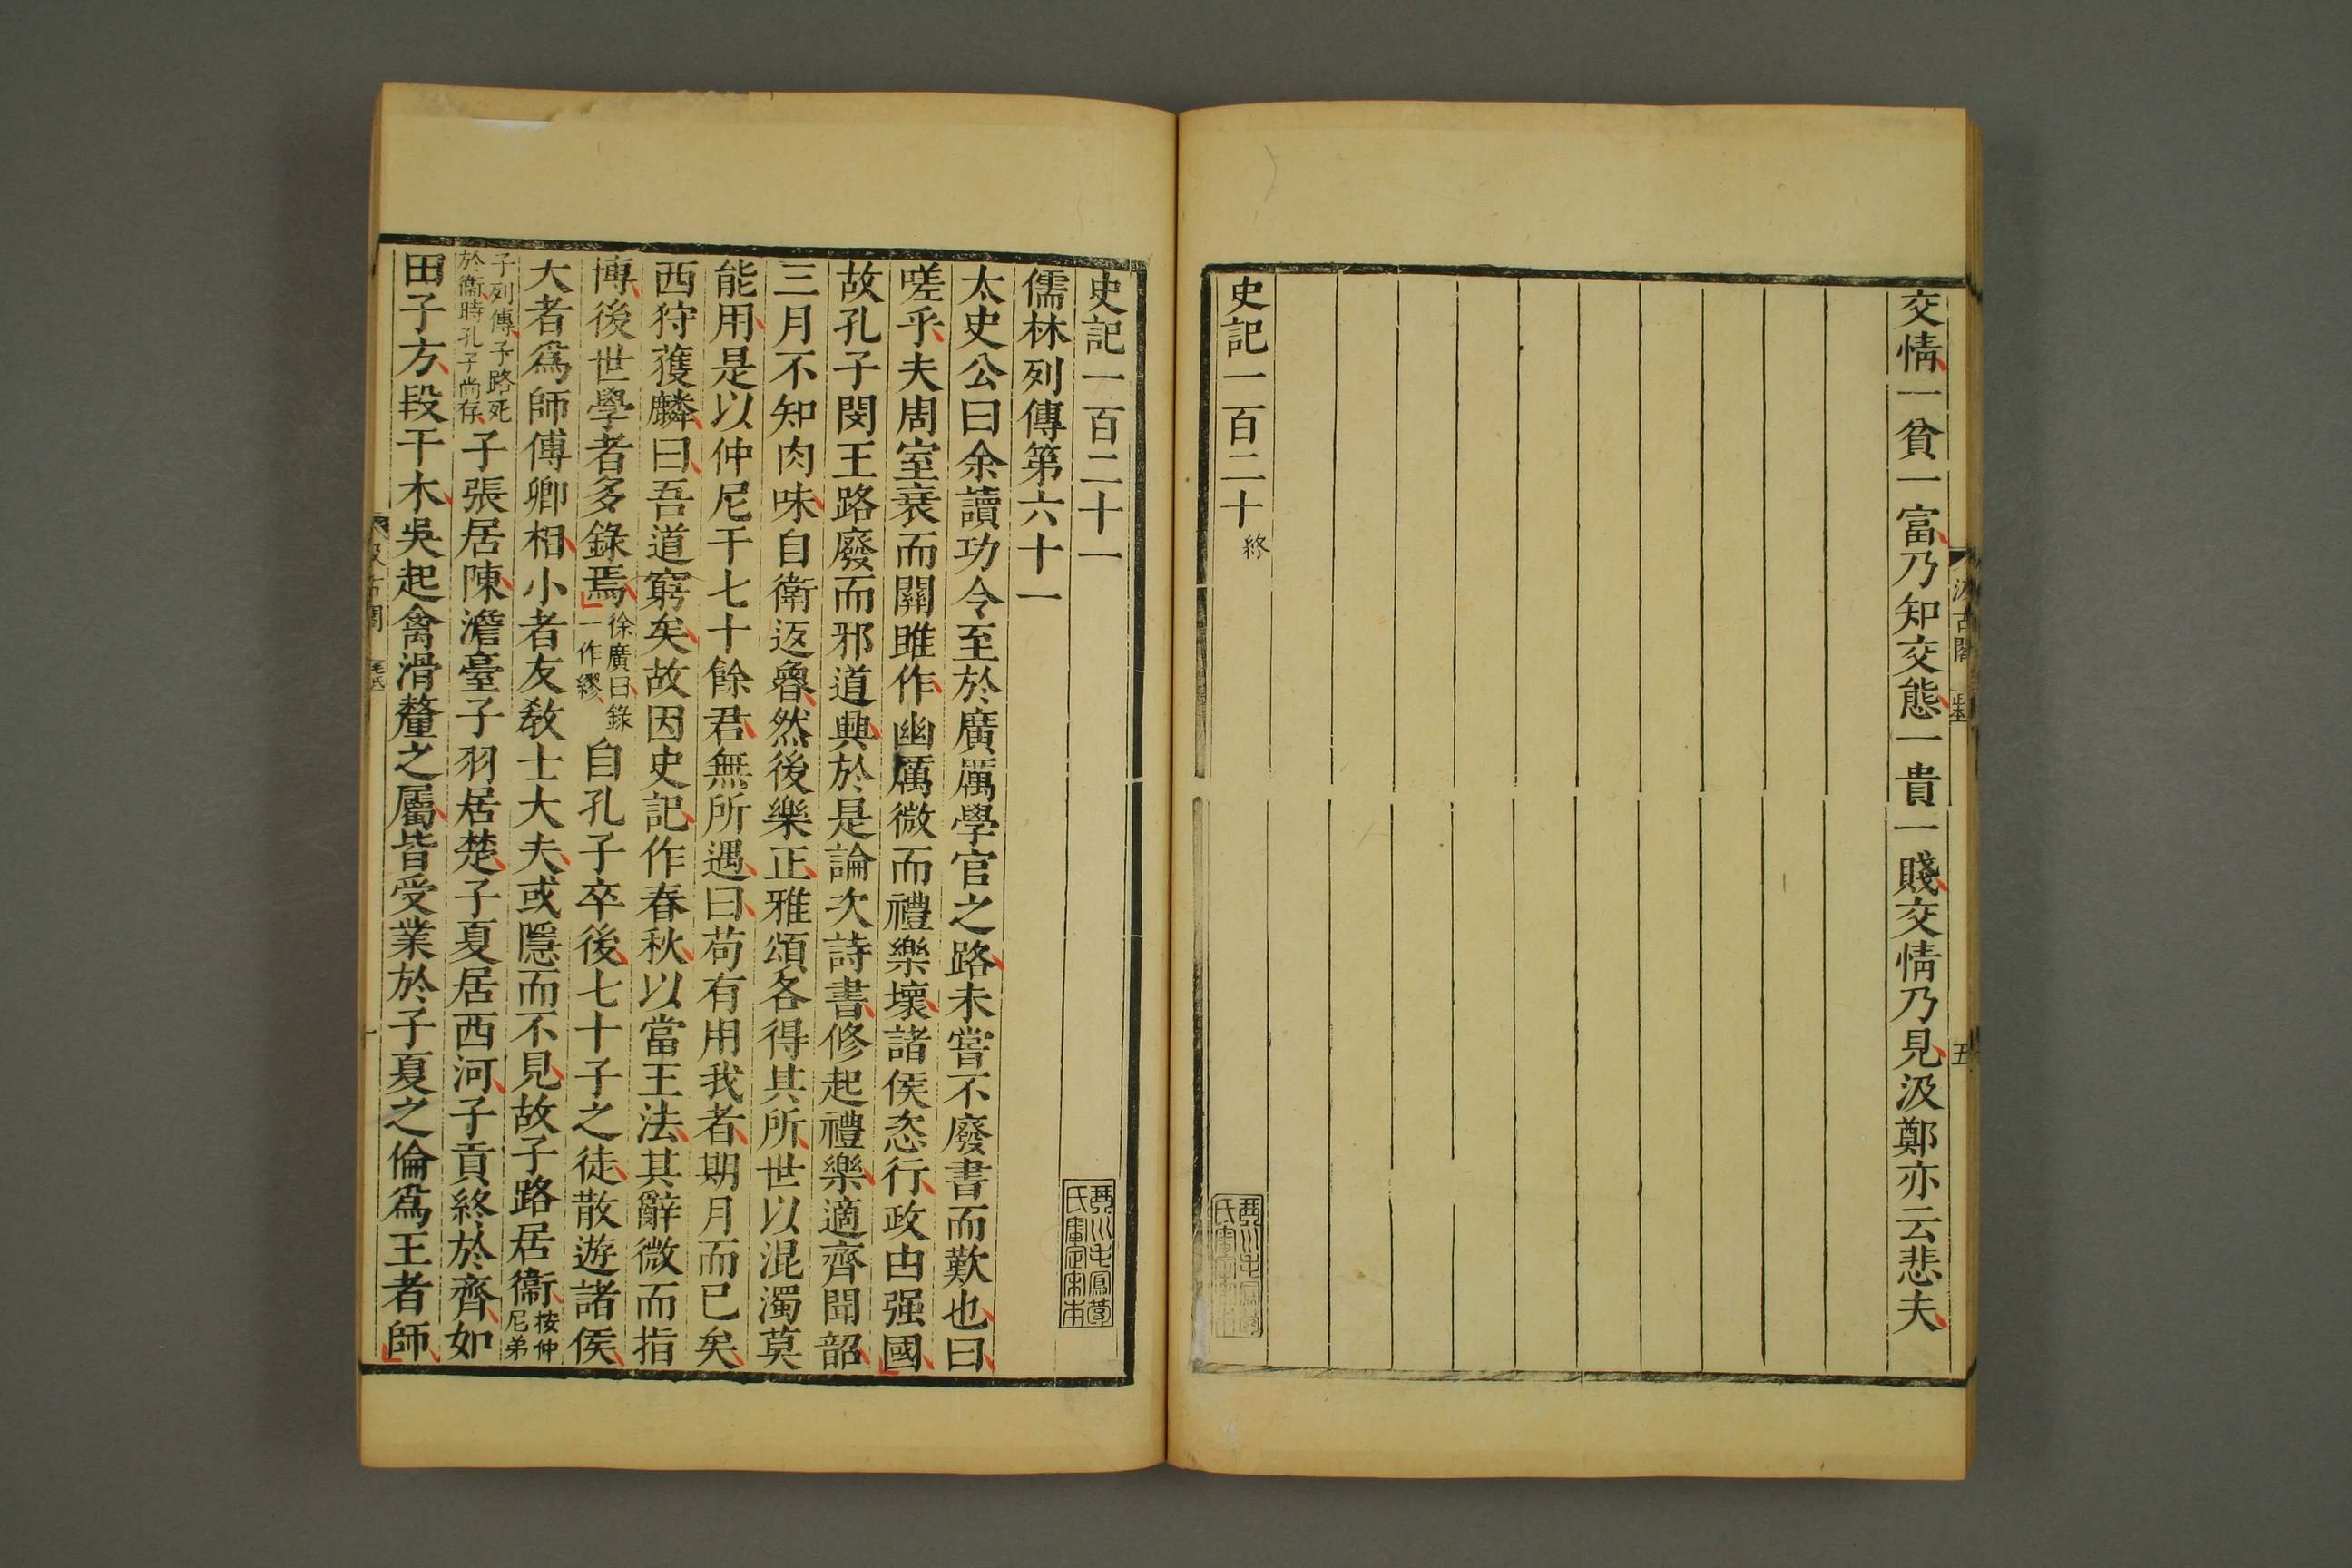 交情一貧一富乃知交態一貴一賤交情乃見汲鄭亦云悲夫
史記一百二十 終
史記一百二十一
儒林列傳第六十一
太史公曰余讀功令至於廣厲學官之路未嘗不廢書而歎也曰
嗟乎夫周室衰而關雎作幽厲微而禮樂壞諸侯恣行政由强國
故孔子閔王路廢而邪道興於是論次詩書修起禮樂適齊聞韶
三月不知肉味自衛返魯然後樂正雅頌各得其所世以混濁莫
能用是以仲尼干七十餘君無所遇曰苟有用我者期月而已矣
西狩獲麟曰吾道窮矣故因史記作春秋以當王法其辭微而指
博後世學者多錄焉徐廣曰錄一作繆自孔子卒後七十子之徒散遊諸侯
大者爲師傅卿相小者友敎士大夫或隱而不見故子路居衞按仲尼弟
子列傳子路死於衞時孔子尚存子張居陳澹臺子羽居楚子夏居西河子貢終於齊如
田子方段干木吳起禽滑釐之屬皆受業於子夏之倫爲王者師
汲古閣
五